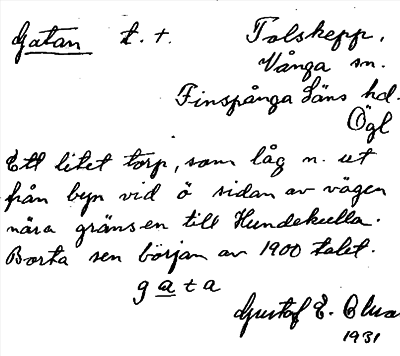 Gatan t. t. Tolskepp,
Vånga sn.
Finspånga läns hd.
Ögl
Ett litet torp, som låg n. ut
från byn vid ö sidan av vägen
nära gränsen till Hundekulla.
Borta sen början av 1900 talet.
gata
Gustof E.
1931